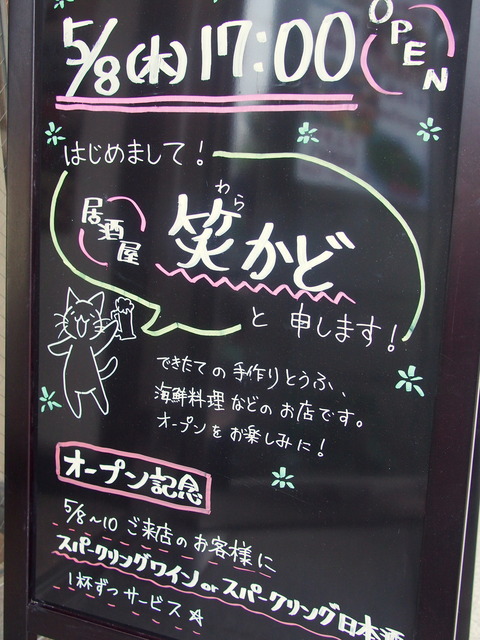 5/8(木) 17:00 OPEN
はじめまして!
わら
居酒屋 笑かど
と 申します!
できたての手作りとうふ、
海鮮料理などのお店です。
オープンをお楽しみに!
オープン記念
5/8~10 ご来店のお客様に
スパークリングワイン or スパークリング日本酒
1杯ずつサービス☆